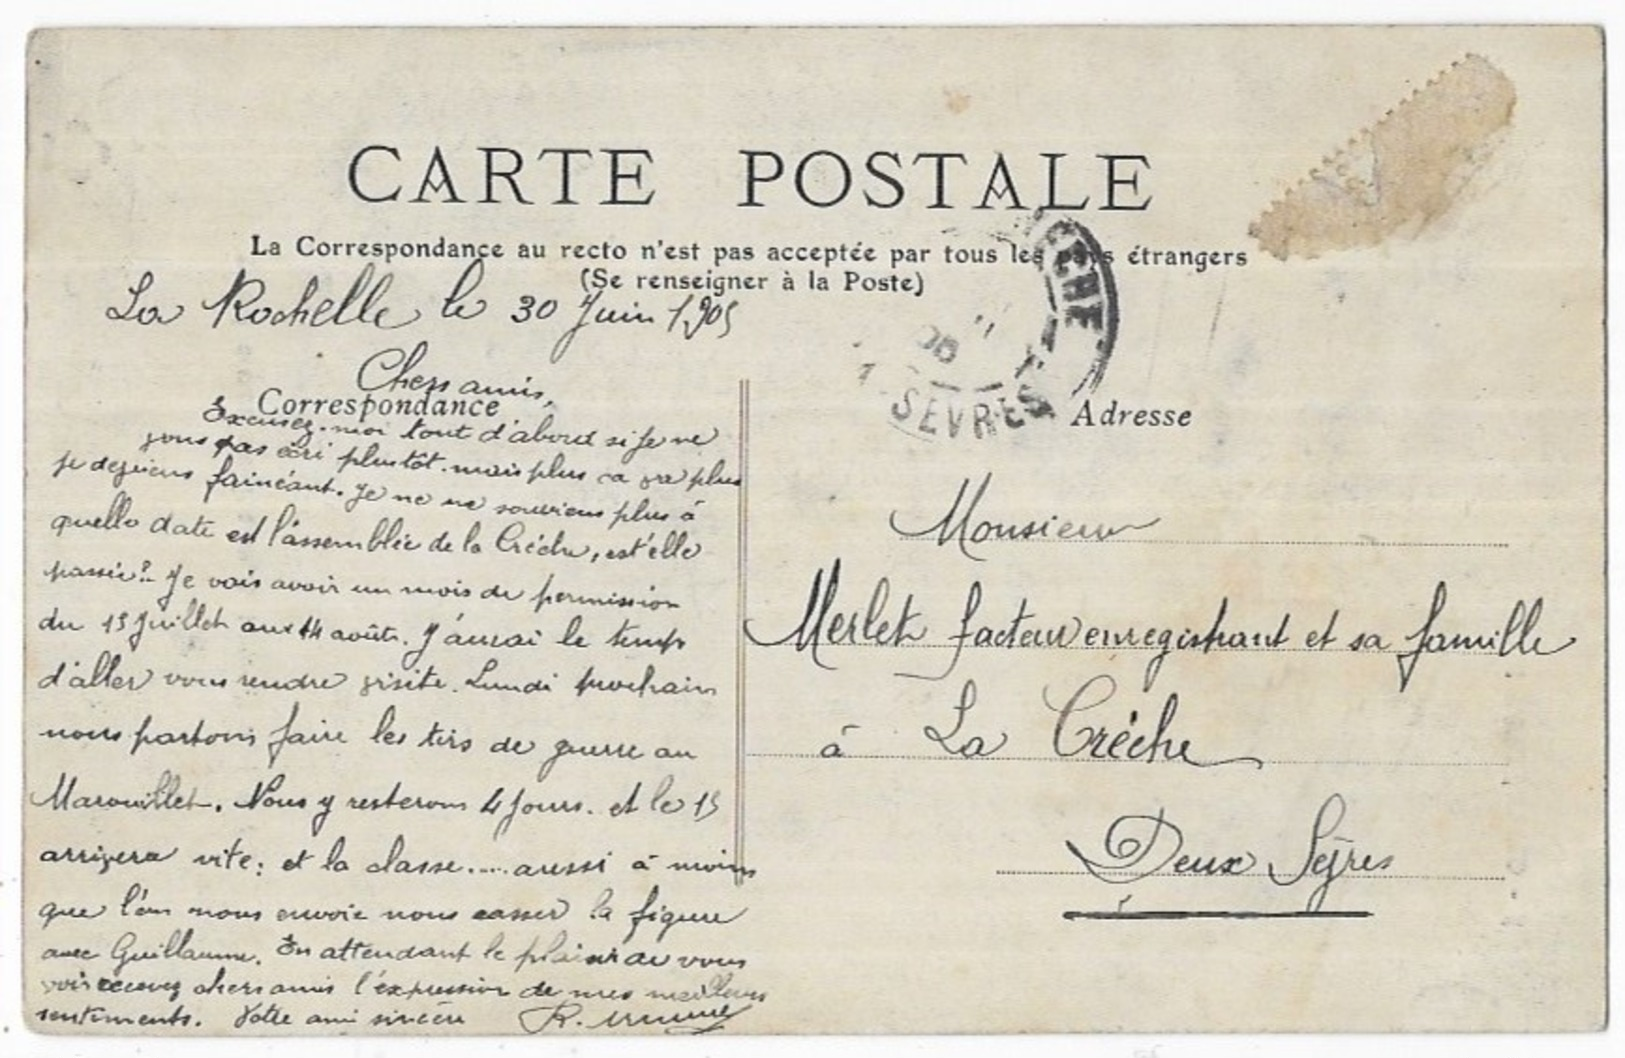 CARTE POSTALE
La Correspondance au recto n'est pas acceptée par tous les pays étrangers
(Se renseigner à la Poste)
La Rochelle le 30 Juin 1905
Chers amis,
Correspondance
Excusez-moi tout d'abord si je ne
vous pas écri plustôt. mais plus ca va plus
je deviens fainéant. Je ne me souviens plus à
quelle date est l'assemblée de la Crèche, est'elle
passée? Je vais avoir un mois de permission
du 15 Juillet aux 14 août. J'aurai le temps
d'aller vous rendre visite. Lundi prochain
nous partons faire les tirs de guerre au
Marouillet. Nous y resterons 4 jours. et le 15
arrivera vite; et la classe..... aussi à moins
que l'on nous envoie nous casser la figure
avec Guillaume. En attendant le plaisir de vous
voir recevez chers amis l'expression de mes meilleurs
sentiments. Votre ami sincère R.
SEVRES
Adresse
Monsieur
Merlet facteur enregistrant et sa famille
à La Crèche
Deux Sèvres